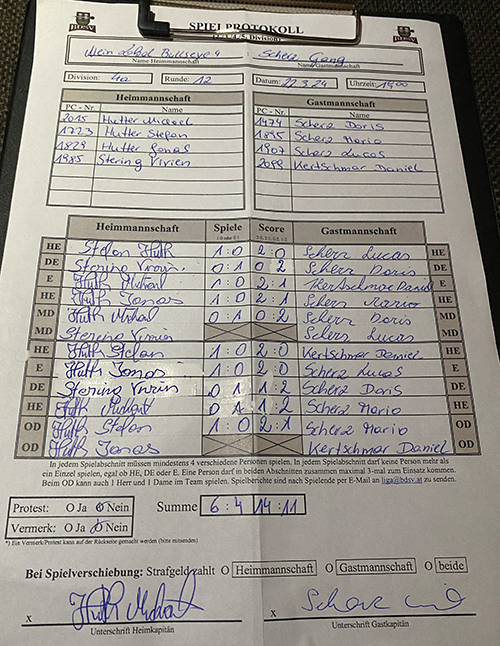 SPIELPROTOKOLL
Mein Lokal Bullseye 4 : Scherz Gang
Name Heimmannschaft Name Gastmannschaft
Division: 4a Runde: 12 Datum: 22.3.24 Uhrzeit: 19:00
Heimmannschaft Gastmannschaft
PC - Nr. Name PC - Nr. Name
2015 Hutter Michael 1979 Scherz Doris
1723 Hutter Stefan 1895 Scherz Mario
1829 Hutter Jonas 1907 Scherz Lucas
1985 Stering Vivien 2099 Kertschmar Daniel
Heimmannschaft Spiele Score Gastmannschaft
1:0 oder 0:1 2:0, 2:1, 0:2, 1:2
HE Stefan Huth 1:0 2:0 Scherz Lucas HE
DE Stering Vivien 0:1 0:2 Scherz Doris DE
E Huth Michael 1:0 2:1 Kertschmar Daniel E
HE Huth Jonas 1:0 2:1 Scherz Mario HE
MD Huth Michael 0:1 0:2 Scherz Doris MD
MD Stering Vivien Scherz Lucas MD
HE Huth Stefan 1:0 2:0 Kertschmar Daniel HE
E Huth Jonas 1:0 2:0 Scherz Lucas E
DE Stering Vivien 0:1 1:2 Scherz Doris DE
HE Huth Michael 0:1 1:2 Scherz Mario HE
OD Huth Stefan 1:0 2:1 Scherz Mario OD
OD Huth Jonas Kertschmar Daniel OD
In jedem Spielabschnitt müssen mindestens 4 verschiedene Personen spielen. In jedem Spielabschnitt darf keine Person mehr als
ein Einzel spielen, egal ob HE, DE oder E. Eine Person darf in beiden Abschnitten zusammen maximal 3-mal zum Einsatz kommen.
Beim OD kann auch 1 Herr und 1 Dame im Team spielen. Spielberichte sind nach Spielende per E-Mail an liga@bdsv.at zu senden.
Protest: O Ja O Nein Summe 6:4 14:11
Vermerk: O Ja O Nein
*) Ein Vermerk/Protest kann auf der Rückseite gemacht werden (bitte mitsenden)
Bei Spielverschiebung: Strafgeld zahlt O Heimmannschaft O Gastmannschaft O beide
x Huth Michael x
Unterschrift Heimkapitän Unterschrift Gastkapitän